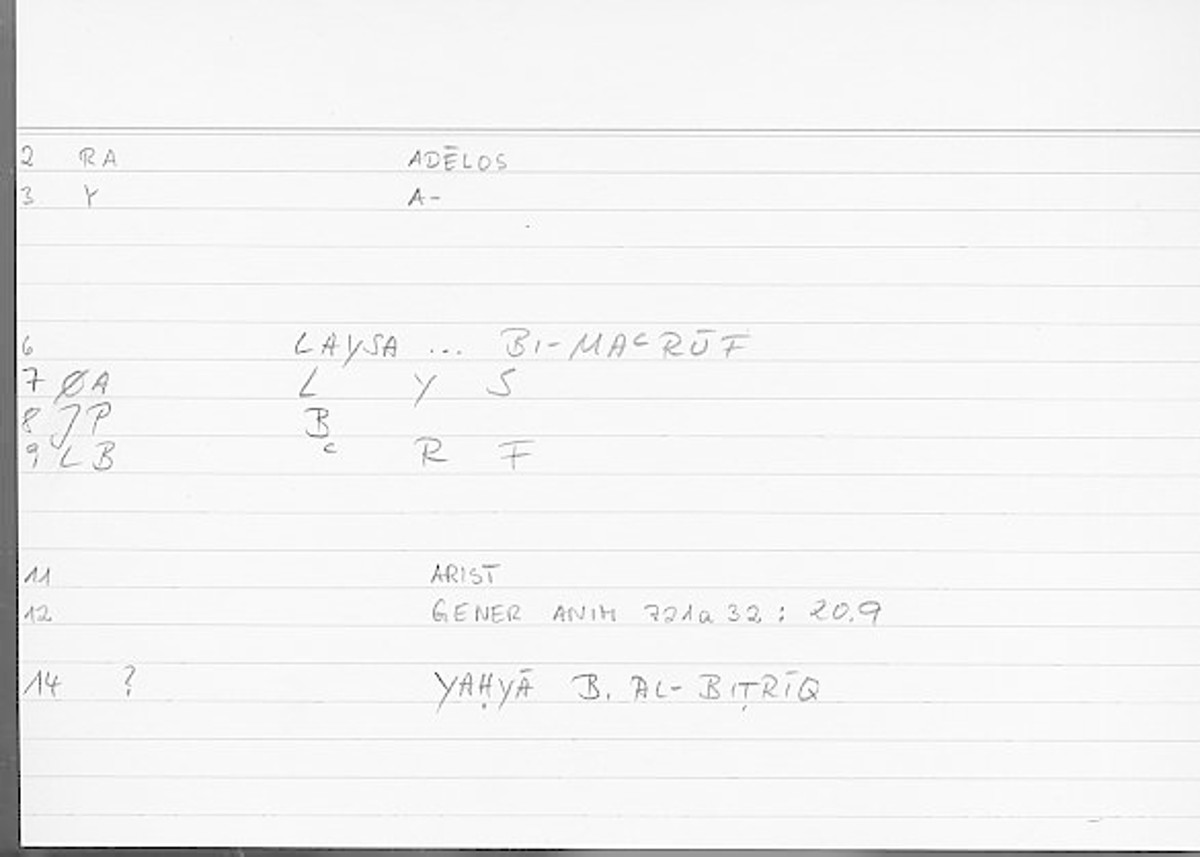 2 RA ADĒLOS
3 Y A-
6 LAYSA ... BI-MAᶜRŪF
7 ØA L Y S
8 JP B
9 LB ᶜ R F
11 ARIST
12 GENER ANIM 721a 32 : 20.9
14 ? YAḤYĀ B. AL-BIṬRĪQ